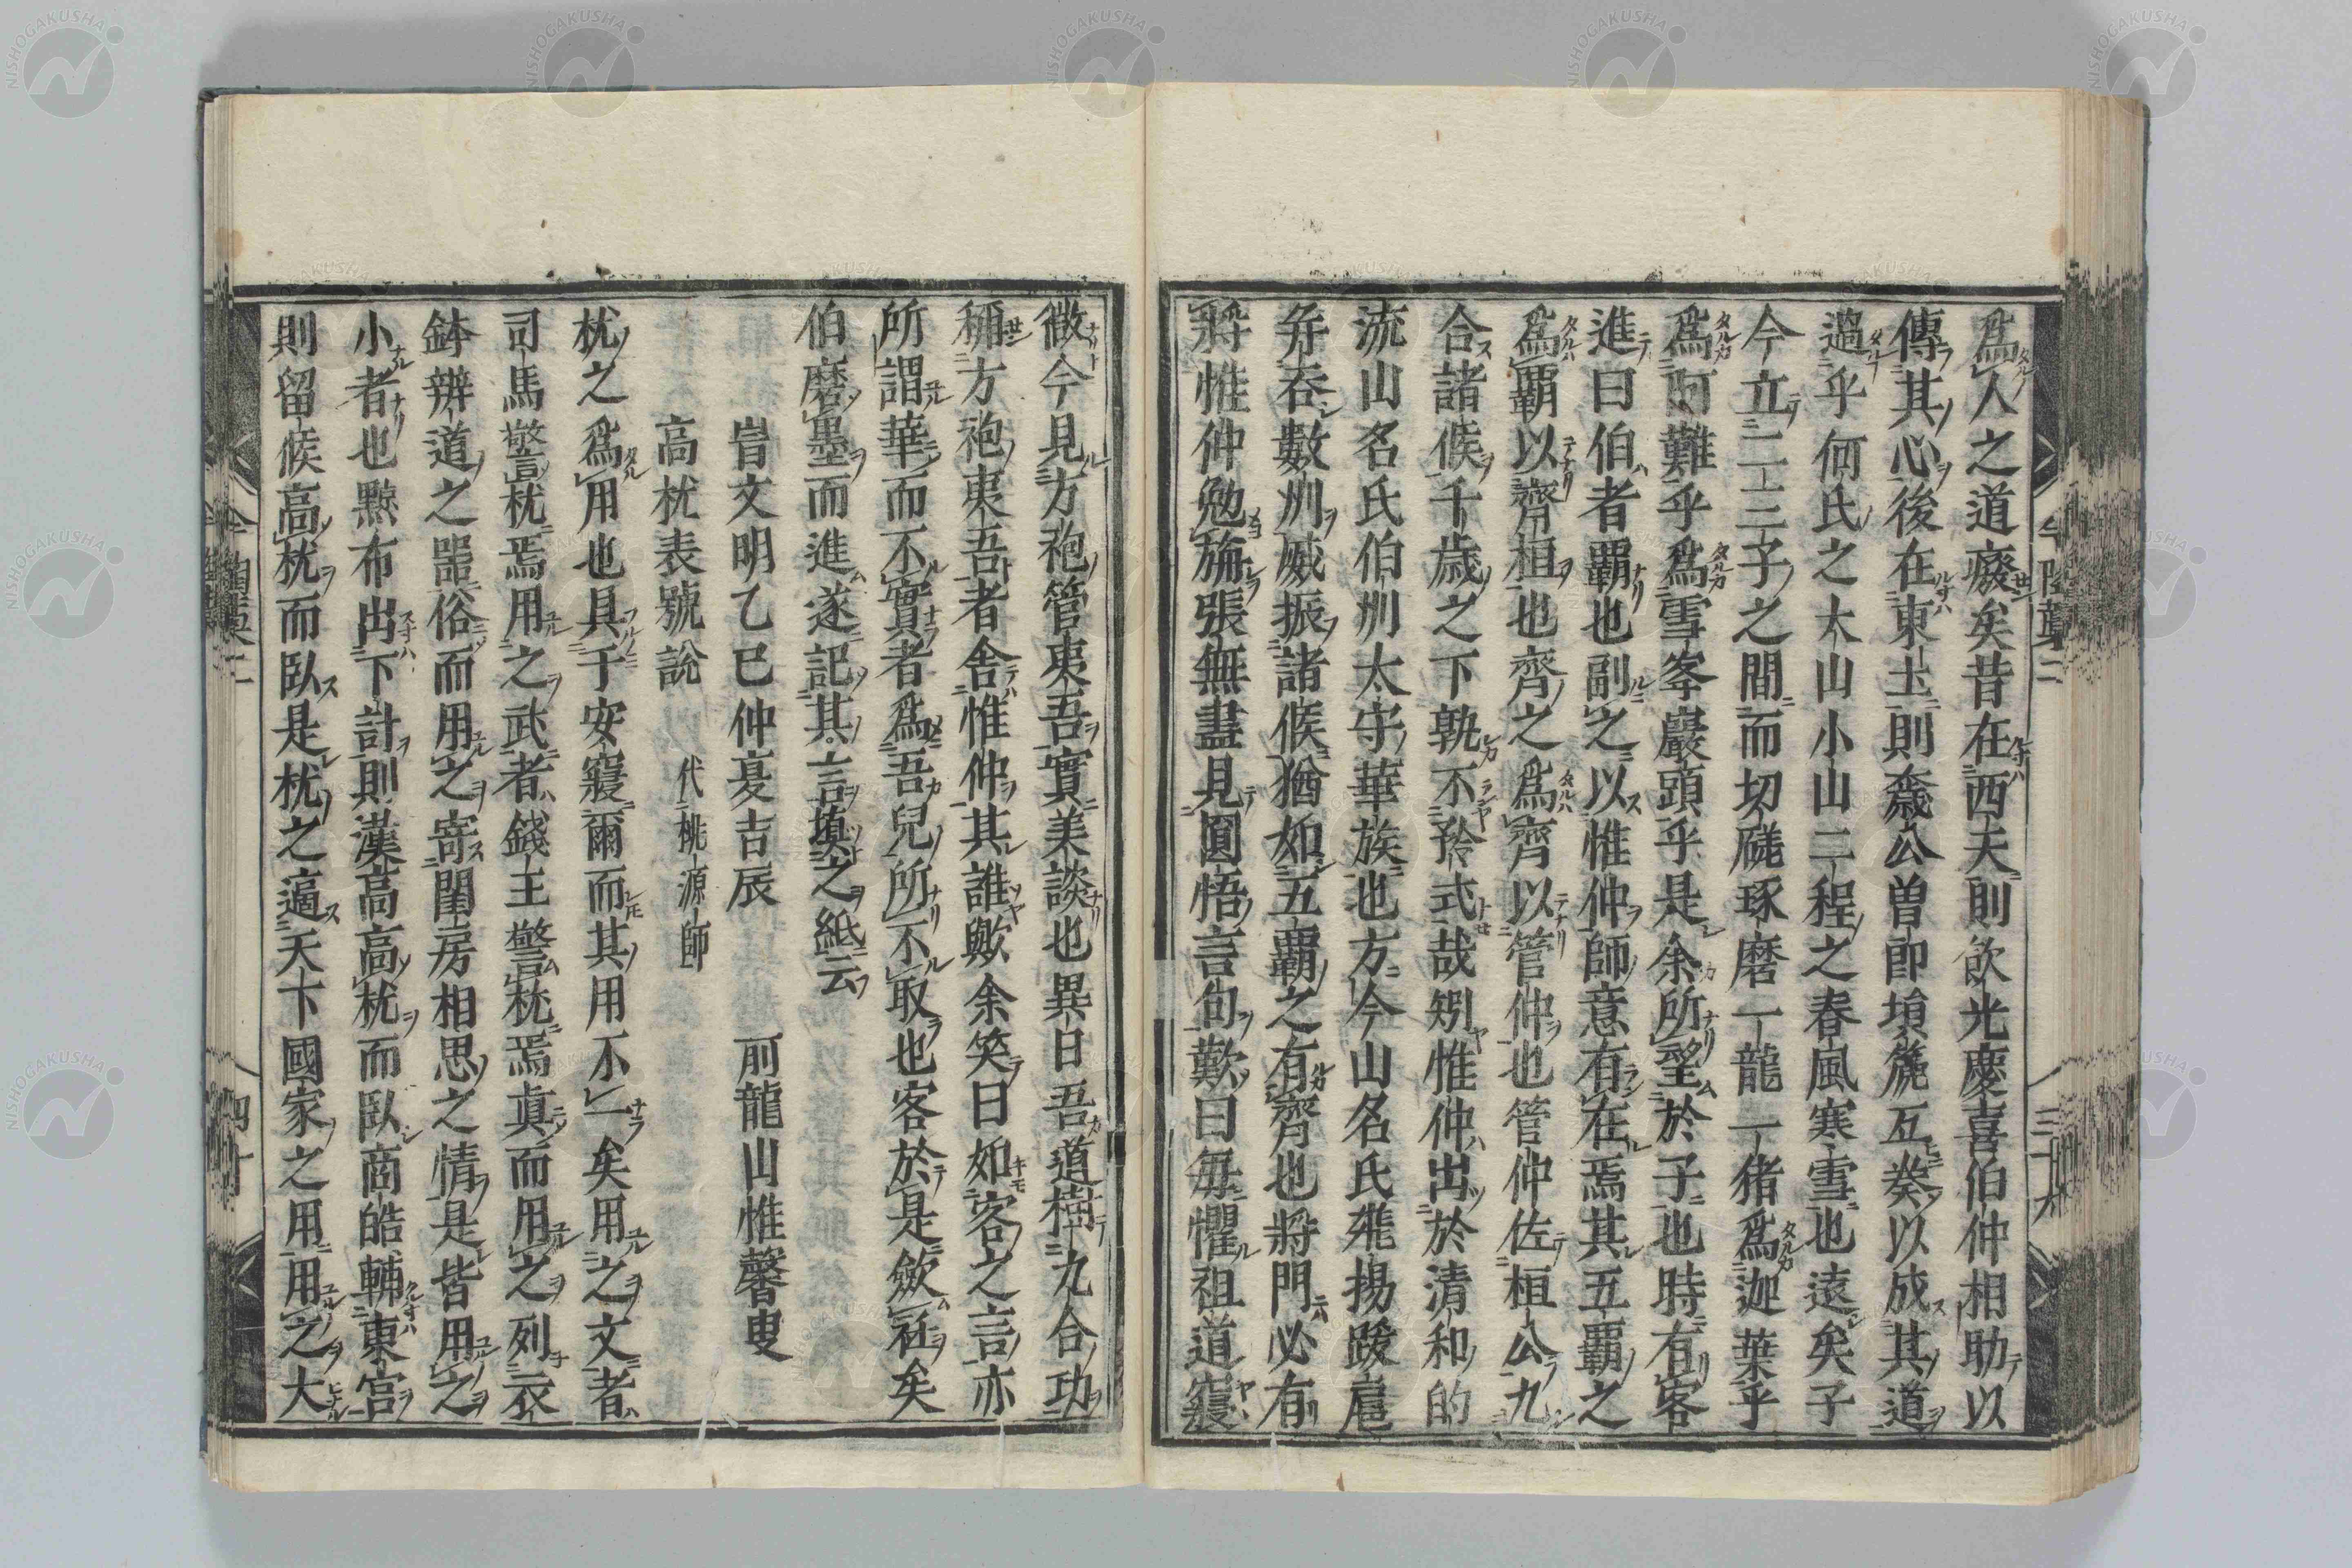 爲人之道癈矣昔在西天則飲光慶喜伯仲相助以
傳其心後在東土則奯公曽郎塤箎互奏以成其道
過乎何氏之太山小山二程之春風寒雪也遠矣子
今立二三子之間而切磋琢磨一龍一猪爲迦葉乎
爲阿難乎爲雪峯巖頭乎是余所望於子也時有客
進曰伯者覇也副之以惟仲師意有在焉其五覇之
爲覇以齊桓也齊之爲齊以管仲也管仲佐桓公九
合諸侯千歳之下孰不矜式哉矧惟仲出於清和的
流山名氏伯州太守華族也方今山名氏飛揚跋扈
并吞數州威振諸侯猶如五覇之有齊也將門必有
將惟仲勉旃張無盡見圓悟言句歎曰毎懼祖道寢
微今見方袍管夷吾實美談也異日吾道樹九合功
稱方袍夷吾者舎惟仲其誰歟余笑曰如客之言亦
所謂華而不實者爲吾兒所不取也客於是斂衽矣
伯磨墨而進遂記其言塡之紙云
旹文明乙巳仲夏吉辰　前龍山惟馨叟
高枕表號說　代桃源師
枕之爲用也具于安寢爾而其用不一矣用之文者
司馬警枕焉用之武者錢王警枕焉眞而用之列衣
鉢辨道之噐俗而用之寄閨房相思之情是皆用之
小者也黥布出下計則漢高高枕而臥商皓輔東宮
則留侯高枕而臥是枕之適天下國家之用用之大